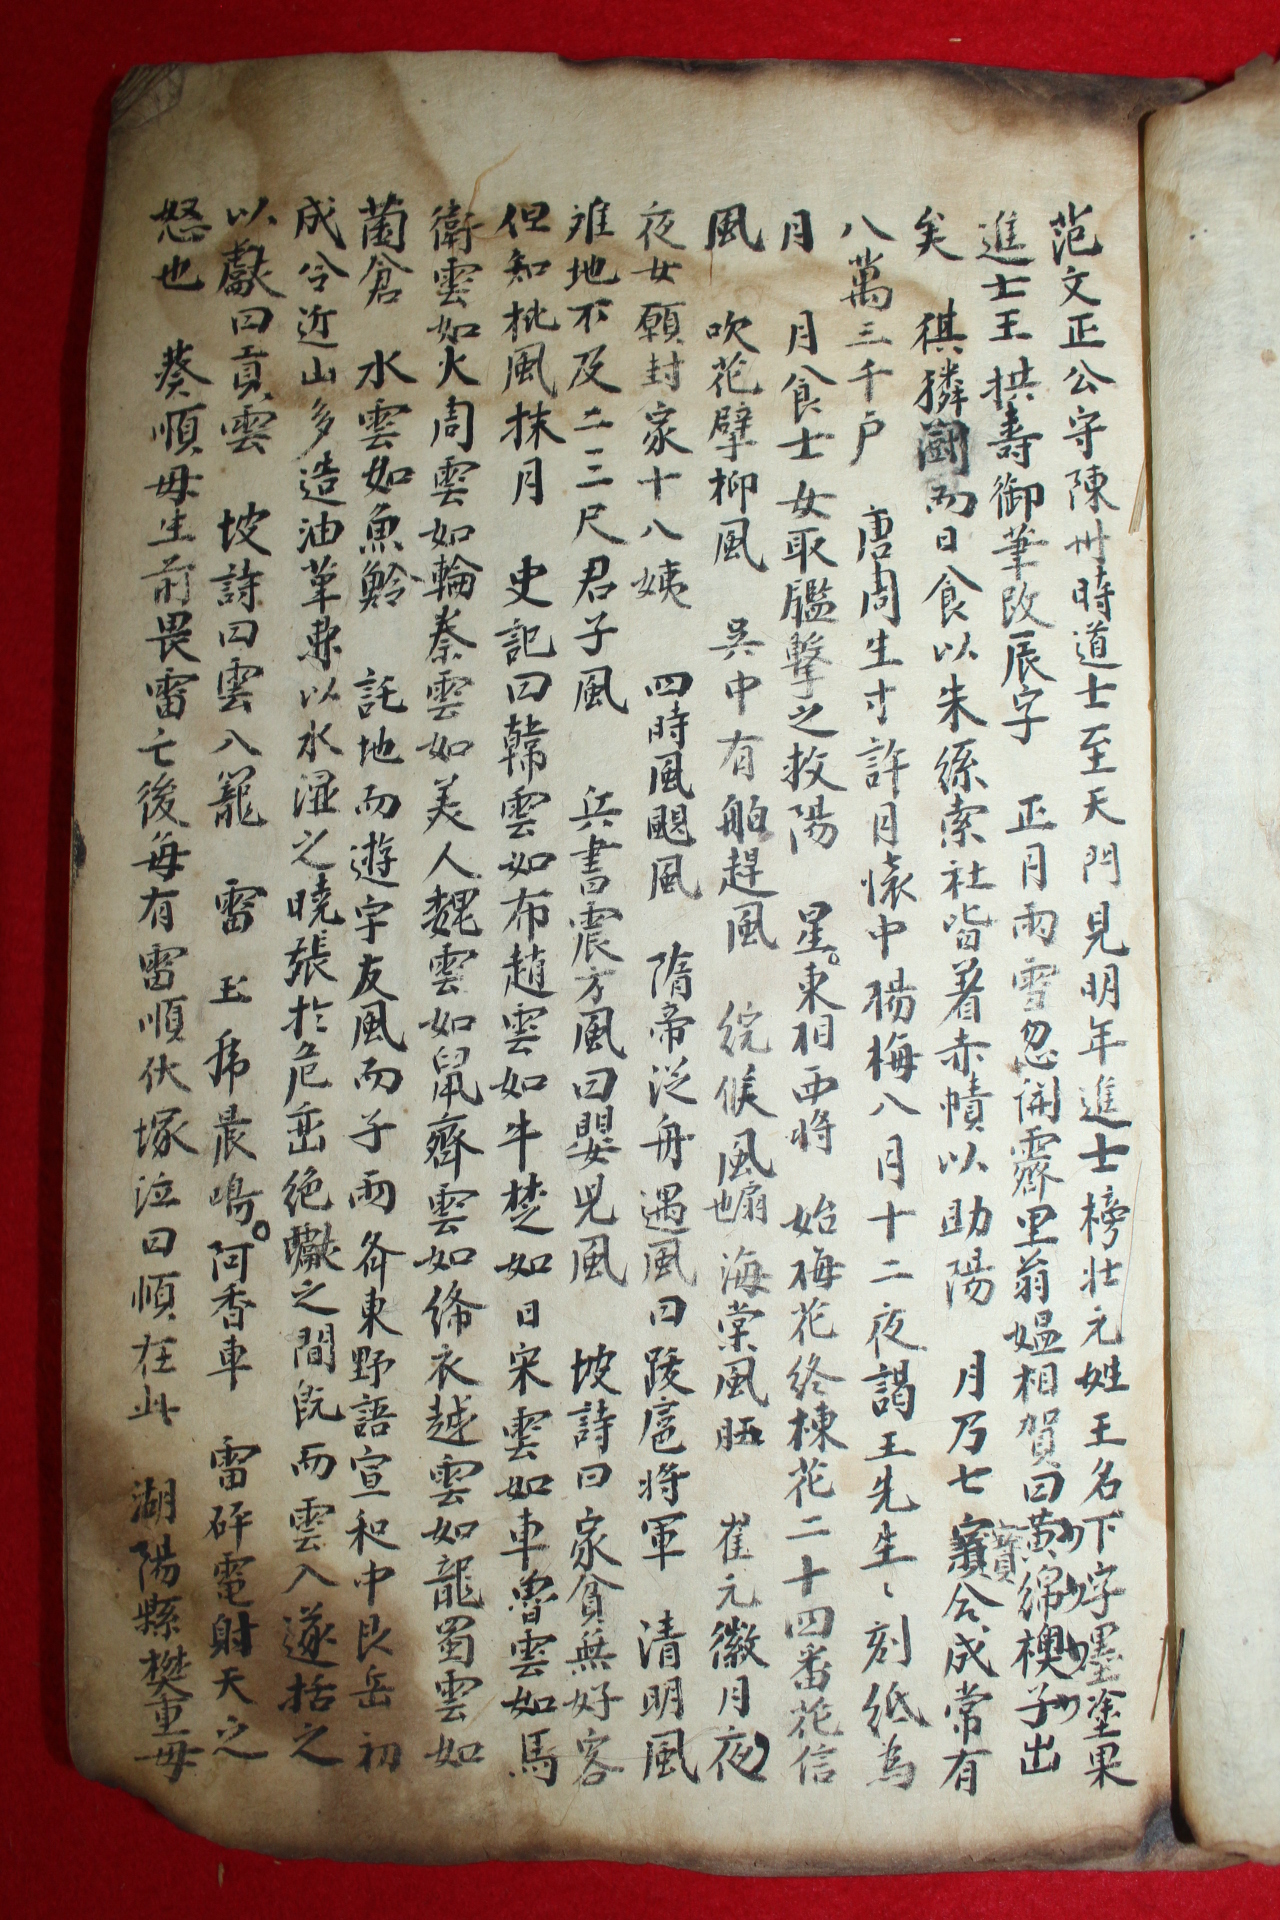 范文正公守陳州時道士至天門見明年進士榜壯元姓王名下字墨塗果
進士王拱壽御筆改辰字 正月雨雪忽開霽里翁媼相賀曰黃綿襖子出
矣 猉獜鬪而日食以朱絲索社皆着赤幘以助陽 月乃七寶合成常有
八萬三千戶 唐周生寸許月懷中楊梅八月十二夜謁王先生〻刻紙為
月 月食士女取鑑擊之救陽 星東相西將 始梅花終楝花二十四番花信
風 吹花擘柳風 吳中有舶趕風 綄候風扇也 海棠風 崔元徽月夜
夜女願封家十八姨 四時風颶風 隋帝泛舟遇風曰跋扈將軍 清明風
雖地不及二三尺君子風 兵書震方風曰嬰兒風 坡詩曰家貧無好客
但知批風抹月 史記曰韓雲如布趙雲如牛楚如日宋雲如車魯雲如馬
衛雲如犬周雲如輪秦雲如美人魏雲如鼠齊雲如絳衣越雲如龍蜀雲如
菌倉 水雲如魚鱗 託地而遊字友風而子雨 齊東野語宣和中艮岳初
成令近山多造油單以水濕之曉張於危巒絕巘之間旣而雲入遂括之
以獻曰貢雲 坡詩曰雲入籠 雷 玉虎晨鳴 阿香車 雷砰電射天之
怒也 蔡順母生前畏雷亡後每有雷順伏塚泣曰順在此 湖陽縣樊重母